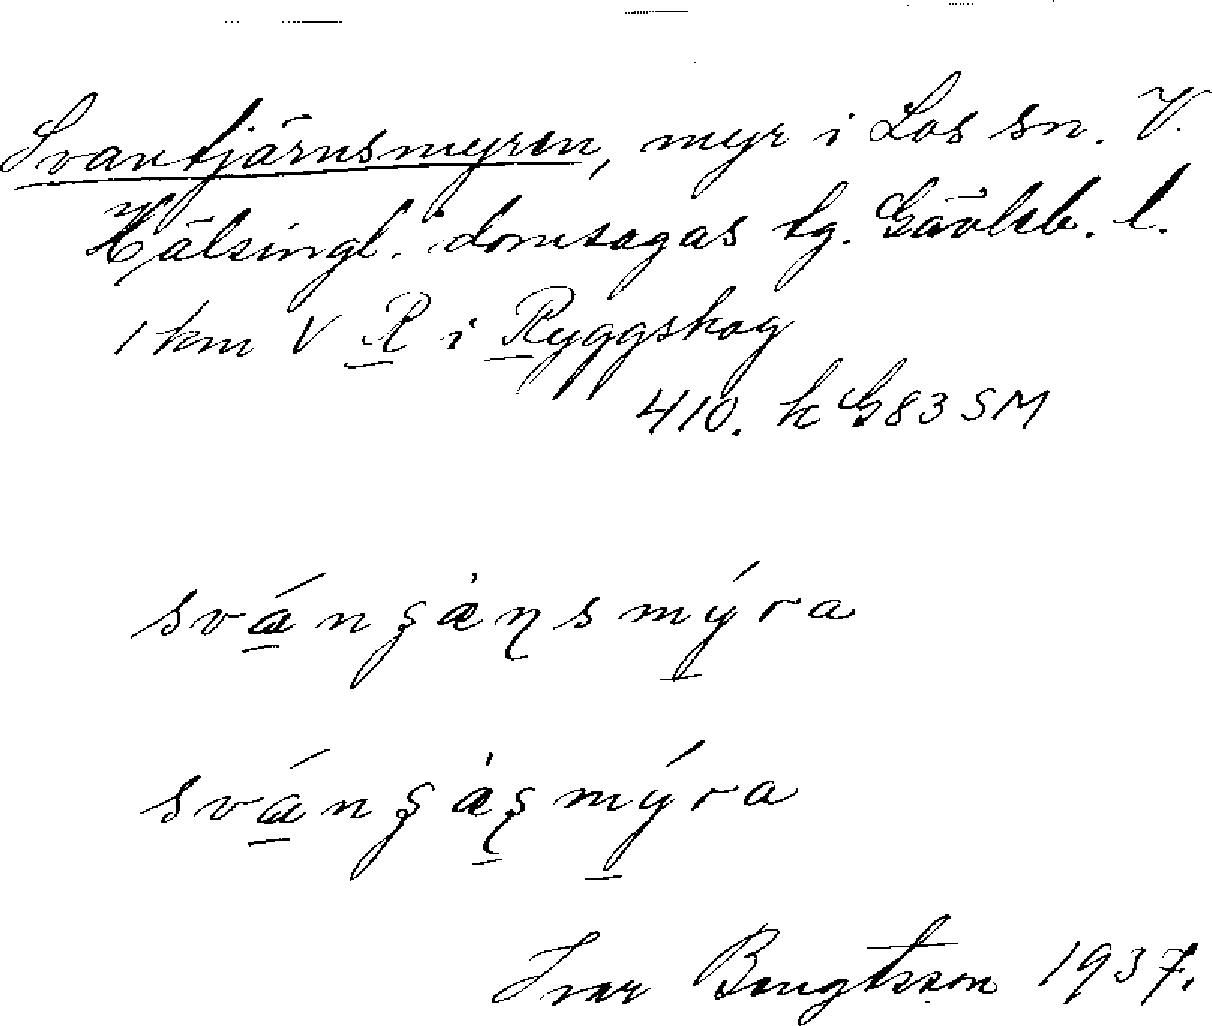 Svantjärnsmyren, myr i Los sn. V.
Hälsingl. domsagas tg. Gävleb. l.
1 km V R i Ryggskog
410. k G83 SM
svánʂæ̀ɳsmýra
svánʂæ̀ʂmýra
Ivar Bengtsson 1937.